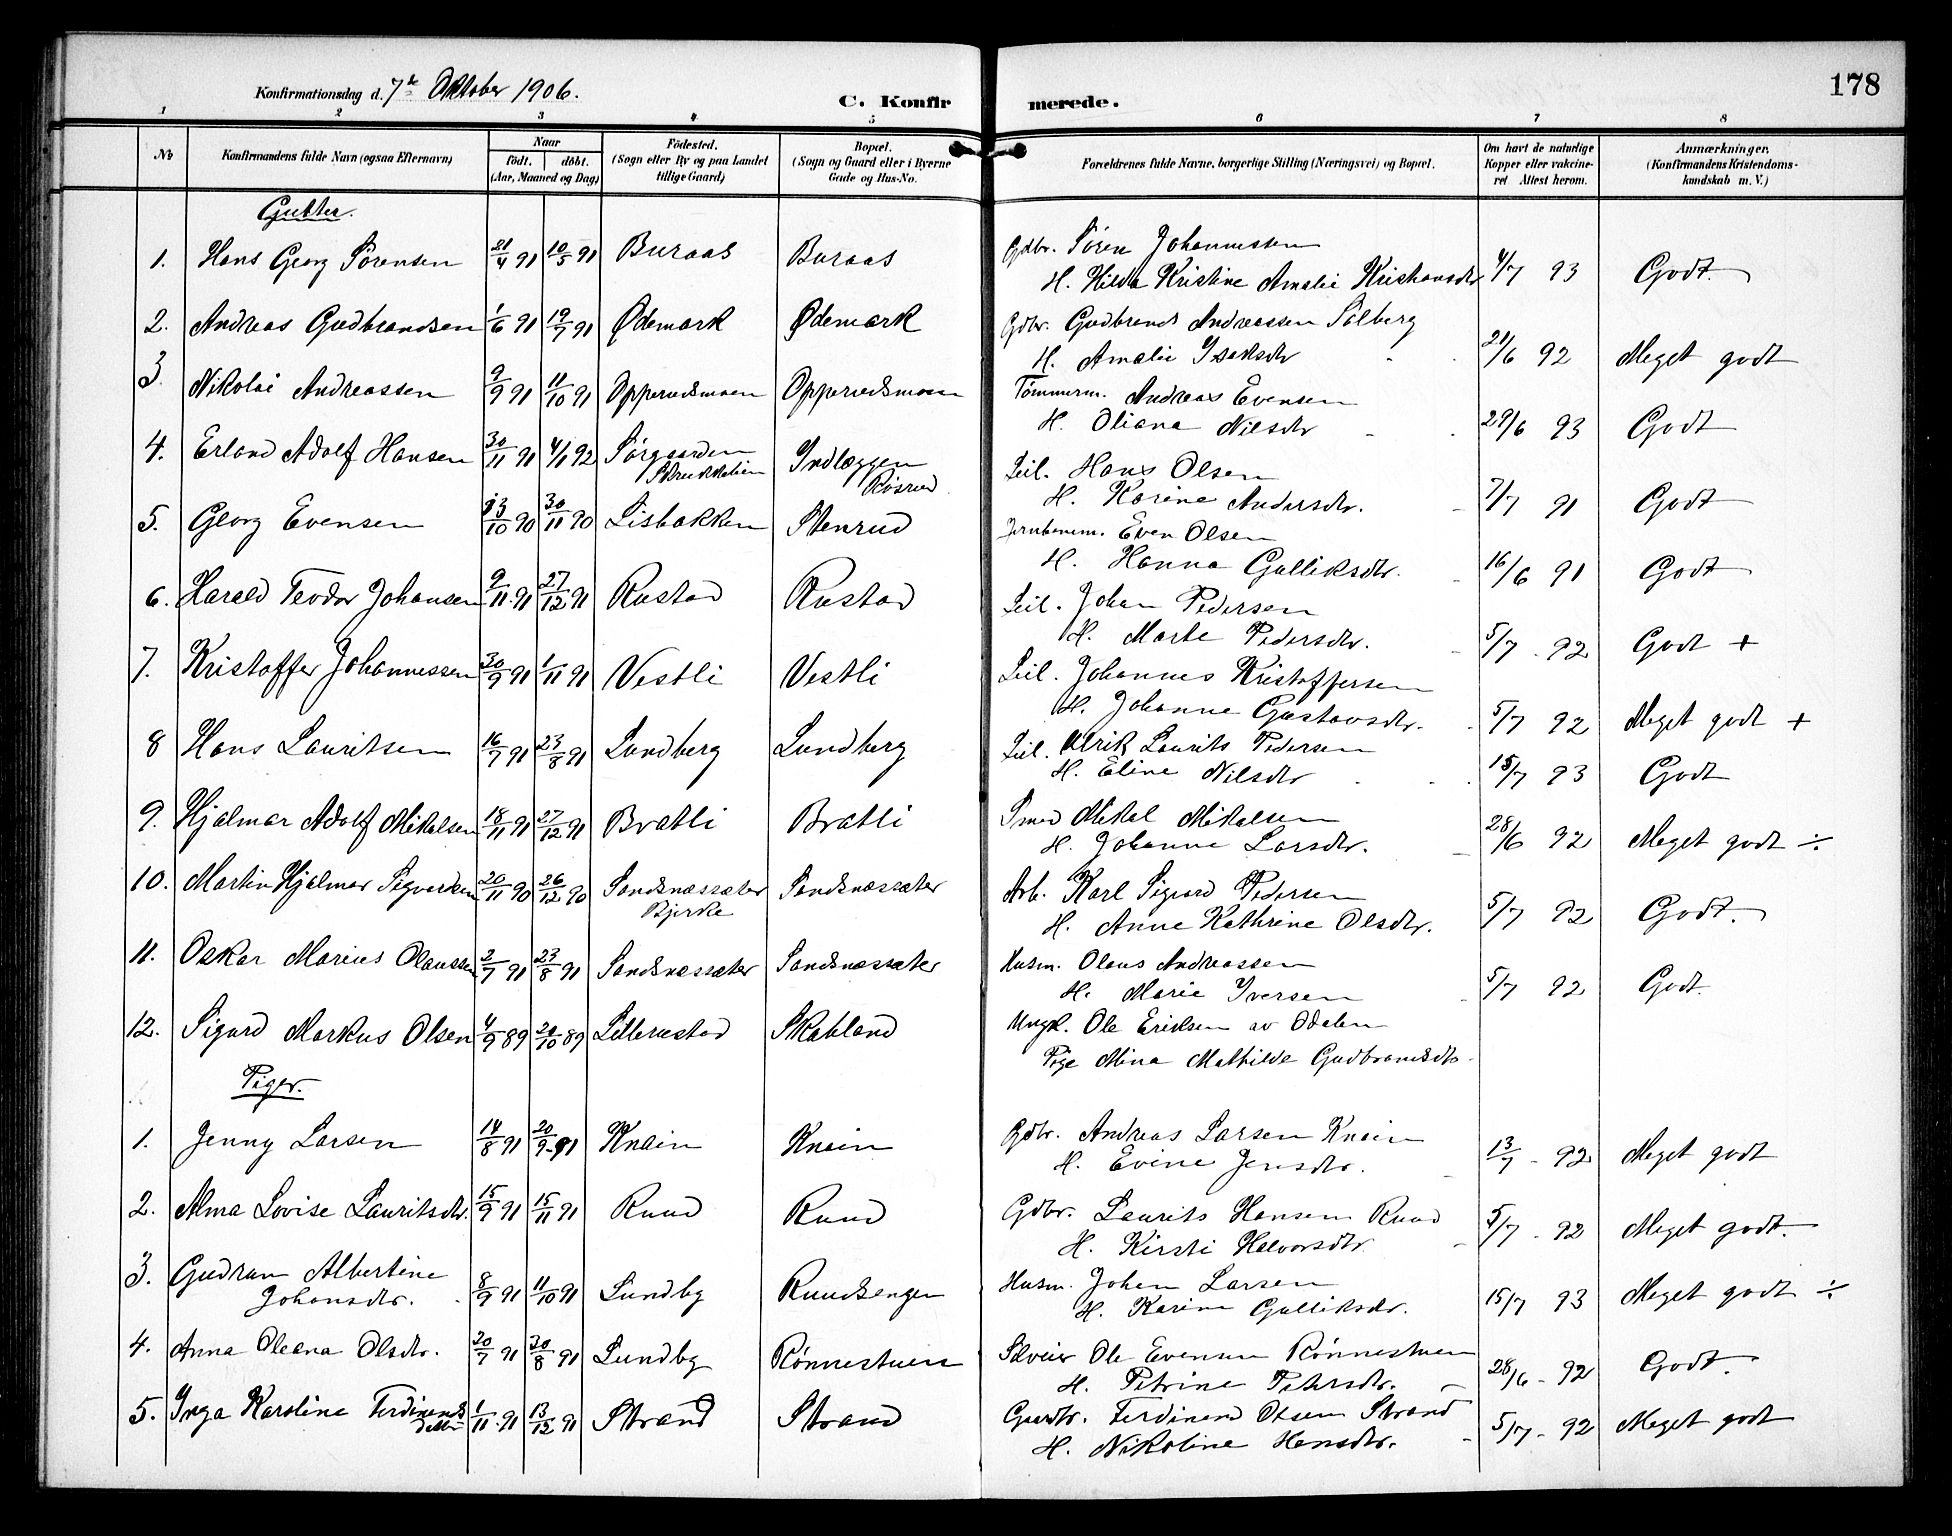 178
Konfirmationsdag d. 7de Oktober 1906.
C. Konfirmerede.
1 2 3 4 5 6 7 8
No
Konfirmandens fulde Navn (ogsaa Efternavn)
Naar
födt. döbt.
(Aar, Maaned og Dag)
Födested.
(Sogn eller By og paa Landet
tillige Gaard)
Bopæl.
(Sogn og Gaard eller i Byerne
Gade og Hus-No.
Forældrenes fulde Navne, borgerlige Stilling (Næringsvei) og Bopæl.
Om havt de naturlige
Kopper eller vakcine-
ret Attest herom.
Anmærkninger.
(Konfirmandens Kristendoms-
kundskab m. V.)
Gutter.
1. Hans Georg Sørensen 21/4 91 10/5 91 Buraas Buraas Gdbr. Søren Johannessen
H. Hilda Kristine Amalie Kristiansdtr 4/7 93 Godt.
2. Andreas Gudbrandsen 1/6 91 19/7 91 Ødemark Ødemark Gdbr. Gudbrand Andreassen Solberg
H. Amalie Isaksdtr 21/6 92 Meget godt
3. Nikolai Andreassen 9/9 91 11/10 91 Opperudsmoen Opperudsmoen Tømmerm. Andreas Evensen
H. Oliana Nilsdtr 29/6 93 Godt
4. Erland Adolf Hansen 30/11 91 4/1 92 Sørgaarden
Skrukkelien Indlæggen
Røsrud Leil. Hans Olsen
H. Karine Andersdtr. 7/7 91 Godt
5. Georg Evensen 13/10 90 30/11 90 Lisbakken Stenrud Jernbanem. Even Olsen
H. Hanna Gulliksdtr. 16/6 91 Godt
6. Harald Teodor Johansen 9/11 91 27/12 91 Rustad Rustad Leil. Johan Pedersen
H. Marte Pedersdtr. 5/7 - 92 Godt +
7. Kristoffer Johannessen 30/9 91 1/11 91 Vestli Vestli Leil. Johannes Kristoffersen
H. Johanne Gustavsdtr. 5/7 92 Meget godt +
8 Hans Lauritsen 16/7 91 23/8 91 Lundberg Lundberg Leil. Ulrik Laurits Pedersen
H. Eline Nilsdtr 15/7 93 Godt
9. Hjalmar Adolf Mikalsen 18/11 91 27/12 91 Bratli Bratli Smed Mikal Mikalsen
H. Johanne Larsdtr. 28/6 92 Meget godt ÷
10. Martin Hjalmar Sigvardsen 20/11 90 26/12 90 Sandsnæssæter
Bjerke Sandsnæssæter Arb. Karl Sigvard Pedersen
H. Anne Kathrine Olsdtr. 5/7 92 Godt.
11. Oskar Marius Olaussen 2/7 91 23/8 91 Sandsnæssæter Sandsnæssæter Husm. Olaus Andreassen
H. Marie Iversen 5/7 92 Godt
12. Sigurd Markus Olsen 4/9 89 20/10 89 Lillerustad Skabland Ungk. Ole Eriksen av Odalen
Pige Mina Mathilde Gudbrandsdtr.
Piger.
1. Jenny Larsen 14/8 91 20/9 91 Knain Knain Gdbr. Andreas Larsen Knain
H. Evine Jensdtr. 13/7 - 92 Meget godt
2. Alma Lovise Lauritsdtr. 15/9 91 15/11 91 Ruud Ruud Gdbr. Laurits Hansen Ruud
H. Kirsti Halvorsdtr. 5/7 - 92 Meget godt.
3. Gudrun Albertine
Johansdtr. 8/9 91 11/10 91 Lundby Ruudsengen Husm. Johan Larsen
H. Karine Gulliksdtr. 15/7 93 Meget godt ÷
4. Anna Oleana Olsdtr. 20/7 91 30/8 91 Lundby Rønnestuen Skreier Ole Evensen Rønnestuen
H. Petrine Petersdtr. 28/6 - 92 Godt.
5. Inga Karoline Ferdinands
datter 1/11 91 13/12 91 Strand Strand Gaardbr. Ferdinand Olsen Strand
H. Nikoline Hansdtr. 5/7 - 92 Meget godt